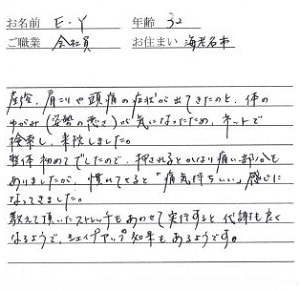 お名前 E・Y 年齢 32
ご職業 会社員 お住まい 海老名市
産後、肩こりや頭痛の症状が出てきたのと、体の
ゆがみ(姿勢の悪さ)が気になったため、ネットで
検索し、来院しました。
整体初めてでしたので、押されるとかなり痛い部分も
ありましたが、慣れてくると"痛気持ちいい"感じに
なってきました。
教えて頂いたストレッチもあわせて実行すると代謝も良く
なるようで、シェイプアップ効果もあるようです。